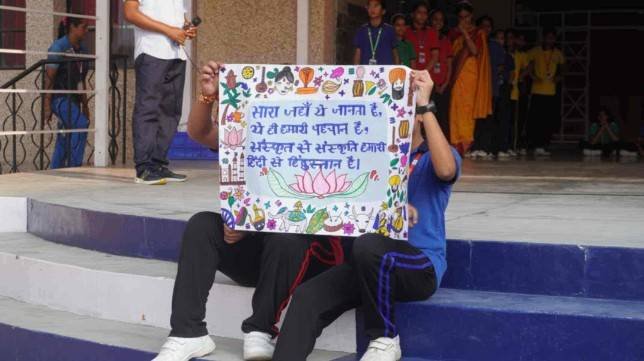 सारा जहाँ ये जानता है,
ये ही हमारी पहचान है,
संस्कृत से संस्कृति हमारी
हिंदी से हिंदुस्तान है।